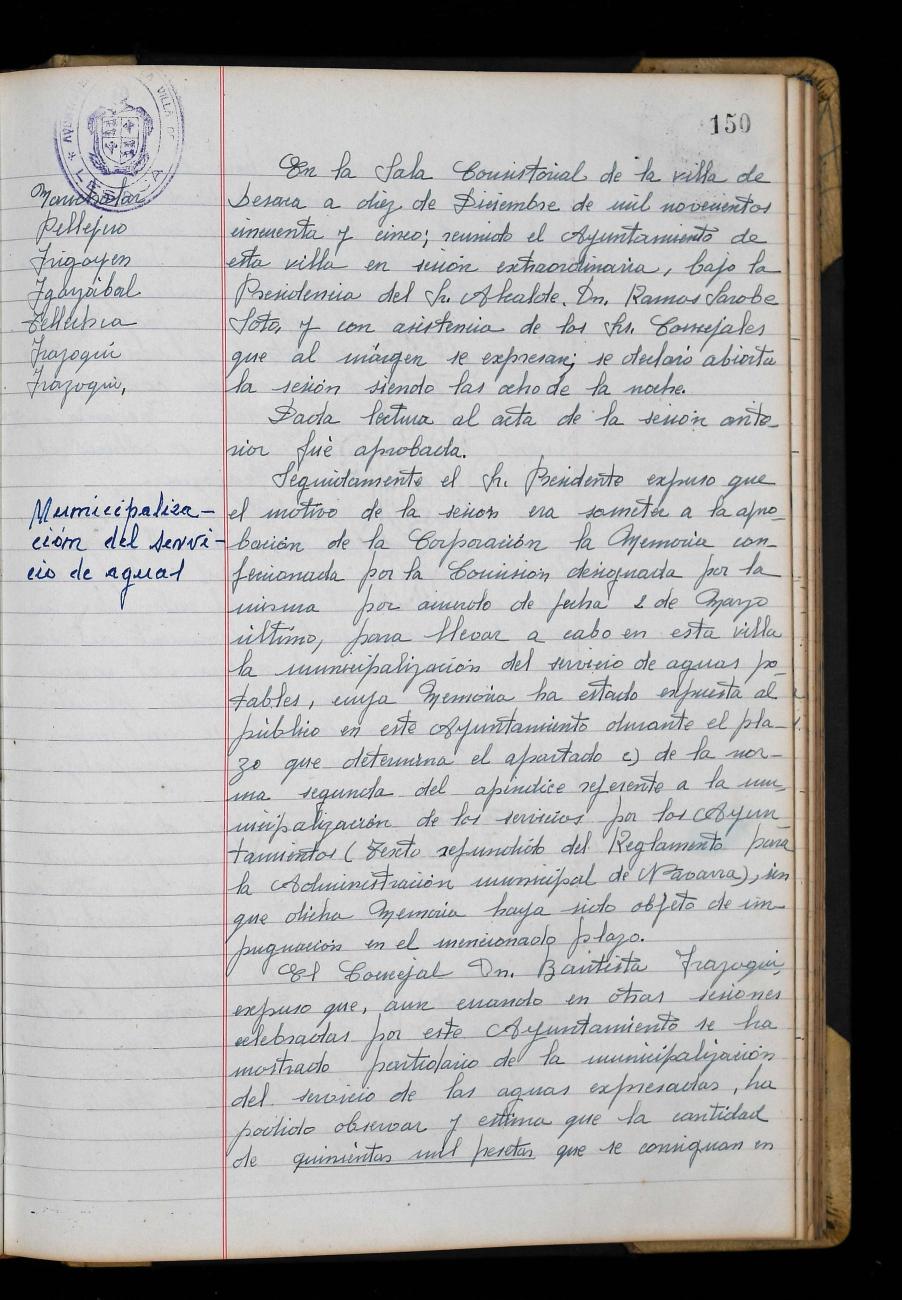 150
AYUNTAMIENTO DE LA VILLA DE
* LESACA
Pellejero
Irigoyen
Igarzábal
Tellechea
Irazoqui
Irazoqui,
En la Sala Consistorial de la villa de
Lesaca a diez de Diciembre de mil novecientos
cincuenta y cinco; reunido el Ayuntamiento de
esta villa en sesión extraordinaria, bajo la
Presidencia del Sr. Alcalde. Dn. Ramos Sarobe
Soto, y con asistencia de los Srs. Concejales
que al márgen se expresan; se declaró abierta
la sesión siendo las ocho de la noche.
Dada lectura al acta de la sesión ante-
rior fué aprobada.
Seguidamente el Sr. Presidente expuso que
Municipaliza-
ción del servi-
cio de aguas
el motivo de la sesion era someter a la apro-
bación de la Corporación la Memoria con-
feccionada por la Comisión designada por la
misma por acuerdo de fecha 2 de Marzo
último, para llevar a cabo en esta villa
la municipalización del servicio de aguas po-
tables, cuya Memoria ha estado expuesta al
público en este Ayuntamiento durante el pla-
zo que determina el apartado c) de la nor-
ma segunda del apéndice referente a la mu-
nicipalización de los servicios por los Ayun-
tamientos (Texto refundido del Reglamento para
la Administración municipal de Navarra), sin
que dicha Memoria haya sido objeto de im-
pugnación en el mencionado plazo.
El Concejal Dn. Bautista Irazoqui,
expuso que, aun cuando en otras sesiones
celebradas por este Ayuntamiento se ha
mostrado partidario de la municipalización
del servicio de las aguas expresadas, ha
podido observar y estima que la cantidad
de quinientas mil pesetas que se consignan en